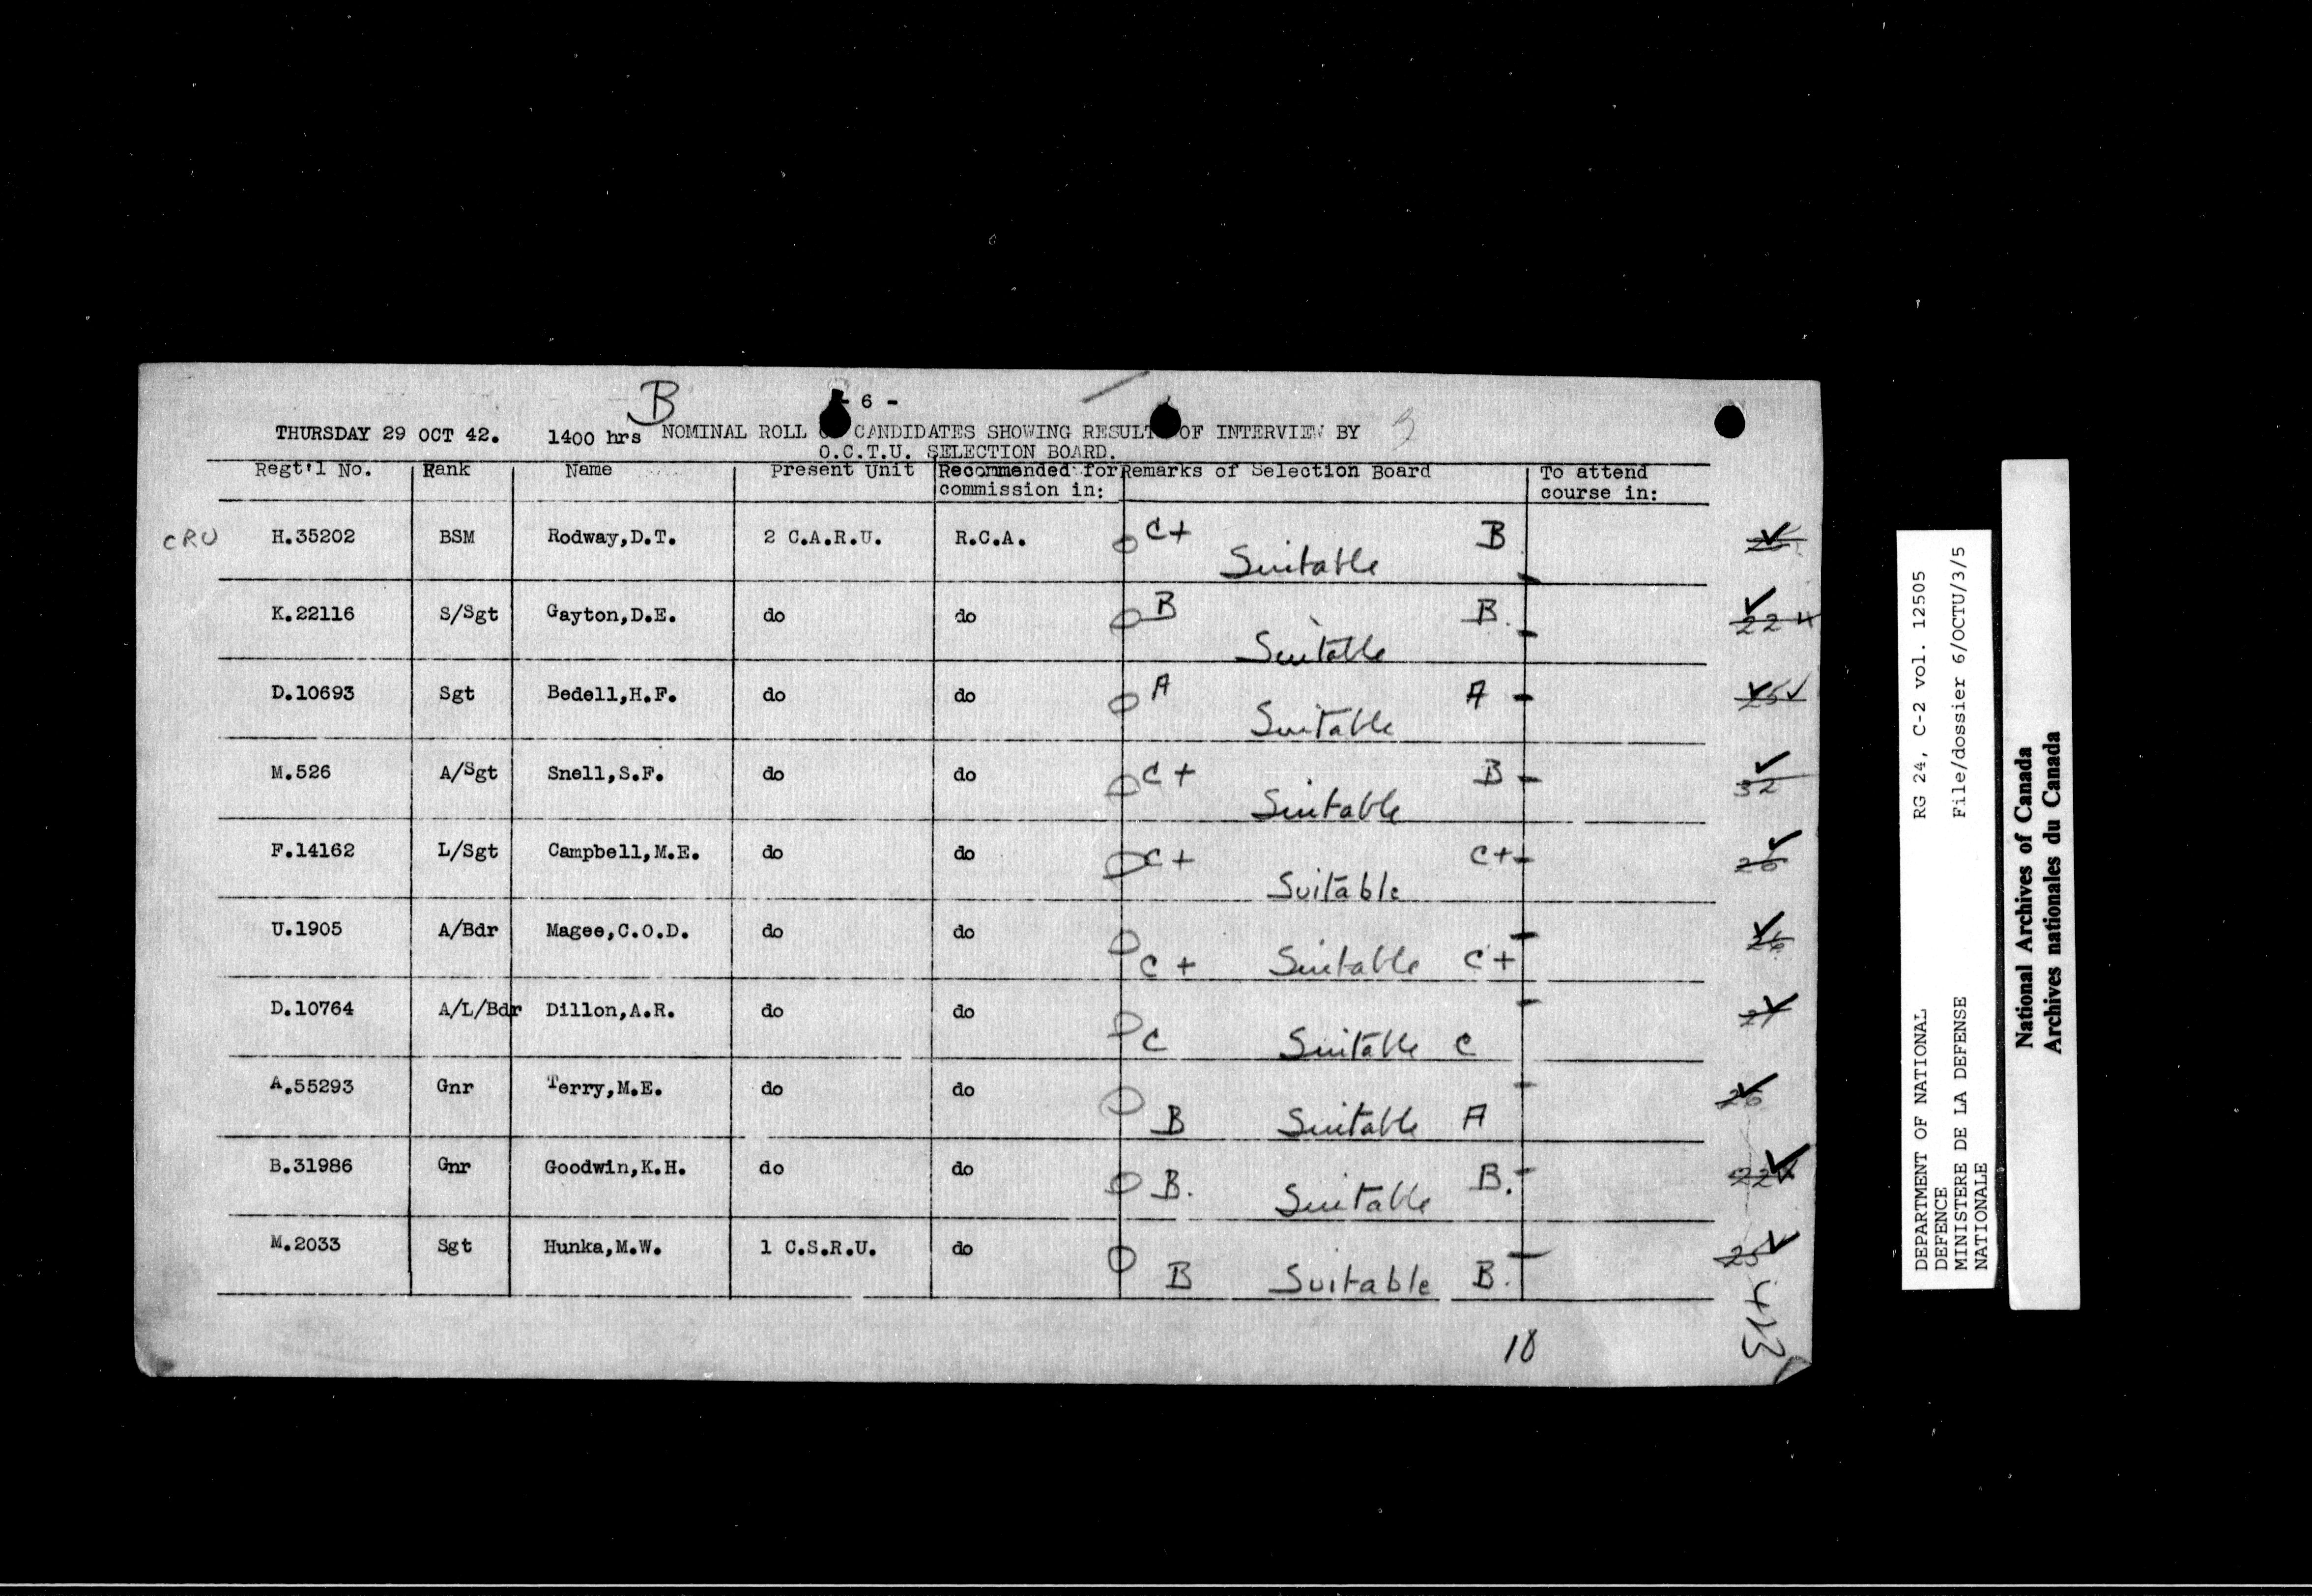 B
- 6 -
THURSDAY 29 OCT 42. 1400 hrs NOMINAL ROLL CANDIDATES SHOWING RESULT OF INTERVIEW BY
O.C.T.U. SELECTION BOARD.
Regt'l No. Rank Name Present Unit Recommended for commission in: Remarks of Selection Board To attend course in:
CRU H.35202 BSM Rodway,D.T. 2 C.A.R.U. R.C.A. C+ Suitable B
K.22116 S/Sgt Gayton,D.E. do do B Suitable B. 22
D.10693 Sgt Bedell,H.F. do do A Suitable A 25
M.526 A/Sgt Snell,S.F. do do C+ Suitable B 32
F.14162 L/Sgt Campbell,M.E. do do C+ Suitable C+ 26
U.1905 A/Bdr Magee,C.O.D. do do C+ Suitable C+ 26
D.10764 A/L/Bdr Dillon,A.R. do do C Suitable C
A.55293 Gnr Terry,M.E. do do B Suitable A 26
B.31986 Gnr Goodwin,K.H. do do B. Suitable B. 22
M.2033 Sgt Hunka,M.W. 1 C.S.R.U. do B Suitable B. 25
18
DEPARTMENT OF NATIONAL
DEFENCE
MINISTERE DE LA DEFENSE
NATIONALE
RG 24, C-2 vol. 12505
File/dossier 6/OCTU/3/5
National Archives of Canada
Archives nationales du Canada